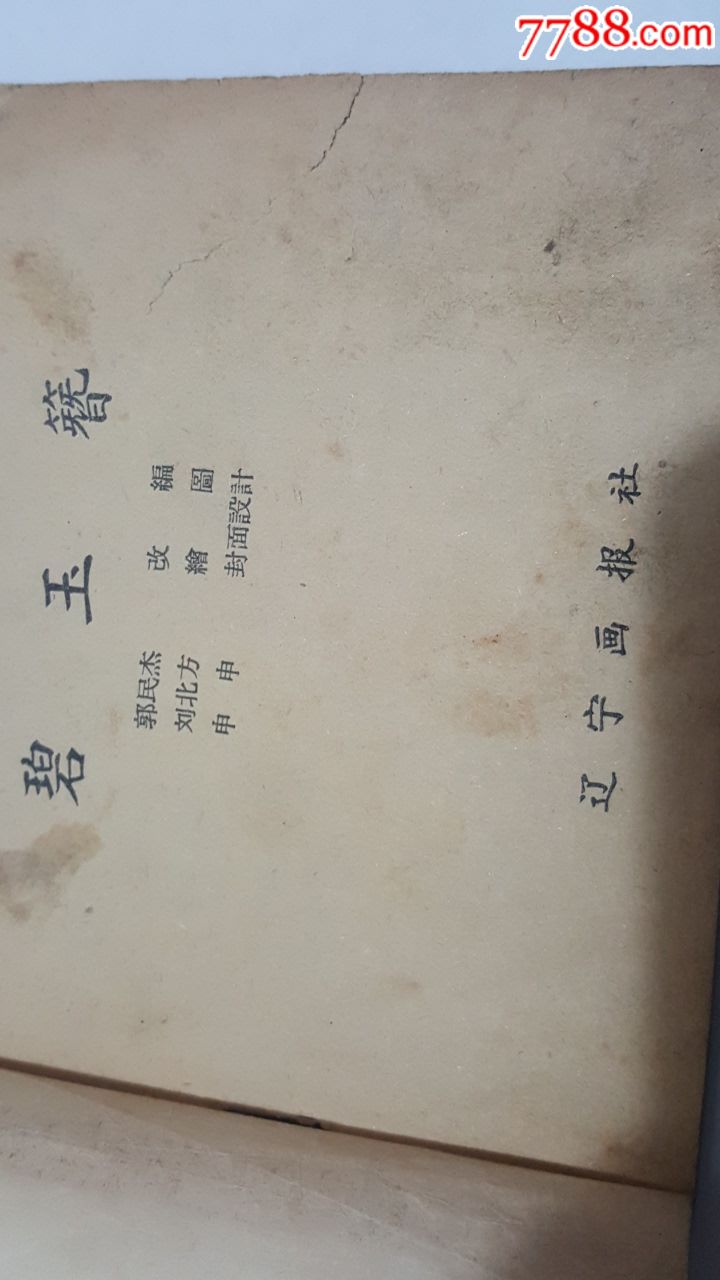 7788.com
碧玉簪
郭民杰 改編
刘北方 繪圖
申申 封面設計
辽宁画报社